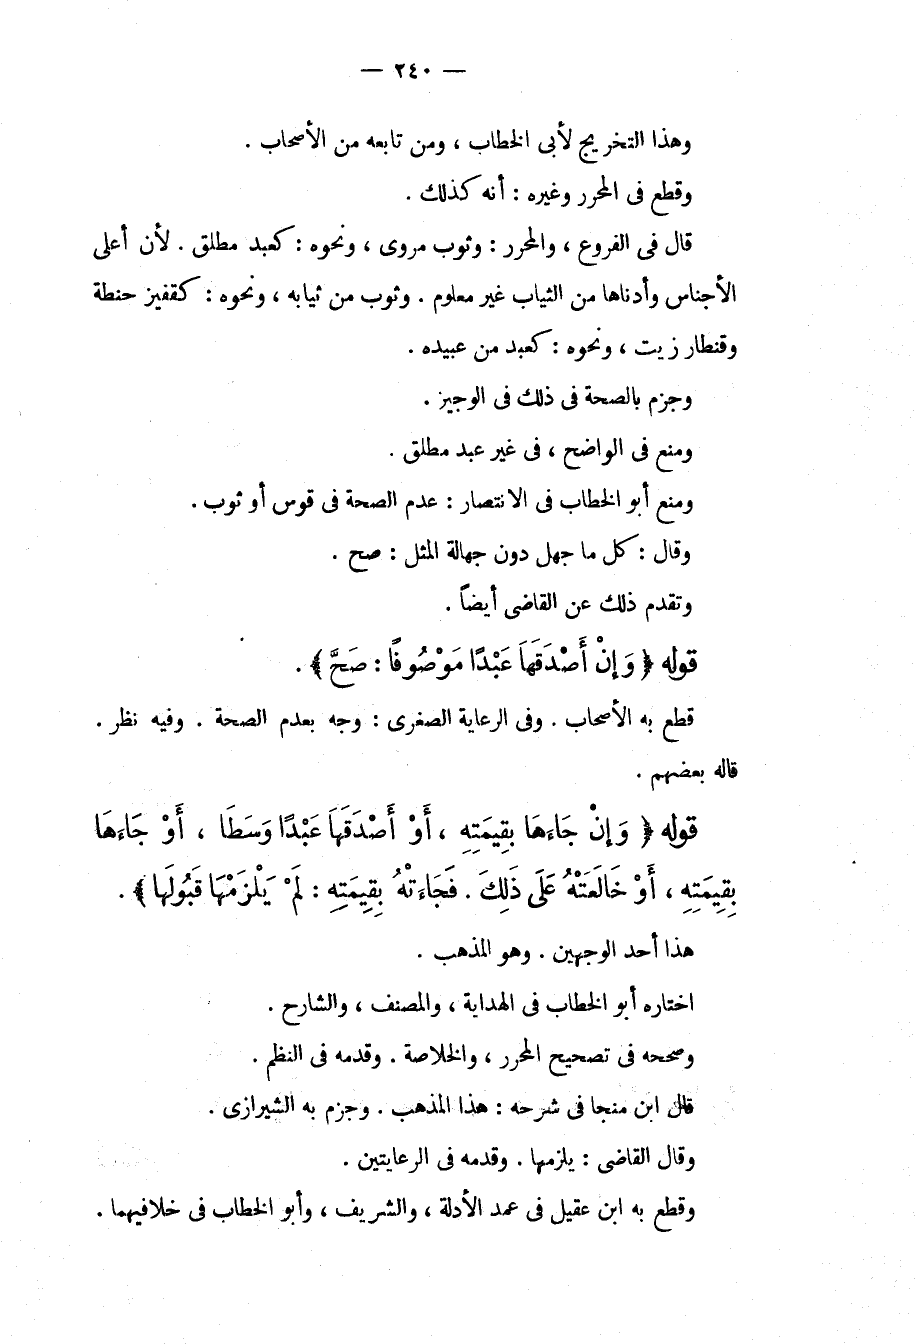 — ٢٤٠ —
وهذا التخريج لأبى الخطاب ، ومن تابعه من الأصحاب .
وقطع فى المحرر وغيره : أنه كذلك .
قال فى الفروع ، والمحرر : وثوب مروى ، ونحوه : كعبد مطلق . لأن أعلى
الأجناس وأدناها من الثياب غير معلوم . وثوب من ثيابه ، ونحوه : كقفيز حنطة
وقنطار زيت ، ونحوه : كعبد من عبيده .
وجزم بالصحة فى ذلك فى الوجيز .
ومنع فى الواضح ، فى غير عبد مطلق .
ومنع أبو الخطاب فى الانتصار : عدم الصحة فى قوس أو ثوب .
وقال : كل ما جهل دون جهالة المثل : صح .
وتقدم ذلك عن القاضى أيضاً .
قوله ﴿ وَإِنْ أَصْدَقَهَا عَبْدًا مَوْصُوفًا : صَحَّ ﴾ .
قطع به الأصحاب . وفى الرعاية الصغرى : وجه بعدم الصحة . وفيه نظر .
قاله بعضهم .
قوله ﴿ وَإِنْ جَاءَهَا بِقِيمَتِهِ ، أَوْ أَصْدَقَهَا عَبْدًا وَسَطًا ، أَوْ جَاءَهَا
بِقِيمَتِهِ ، أَوْ خَالَعَتْهُ عَلَى ذَلِكَ . فَجَاءَتْهُ بِقِيمَتِهِ : لَمْ يَلْزَمْهَا قَبُولُهَا ﴾ .
هذا أحد الوجهين . وهو المذهب .
اختاره أبو الخطاب فى الهداية ، والمصنف ، والشارح .
وصححه فى تصحيح المحرر ، والخلاصة . وقدمه فى النظم .
قال ابن منجا فى شرحه : هذا المذهب . وجزم به الشيرازى .
وقال القاضى : يلزمها . وقدمه فى الرعايتين .
وقطع به ابن عقيل فى عمد الأدلة ، والشريف ، وأبو الخطاب فى خلافيهما .